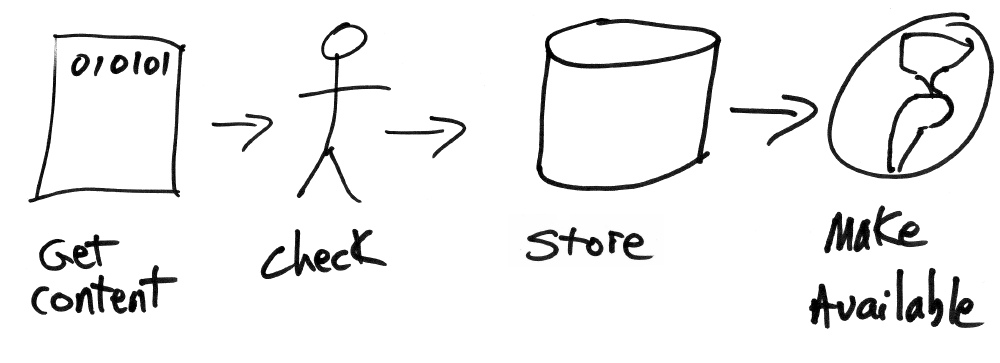 010101
Get
content
check
Store
Make
Available